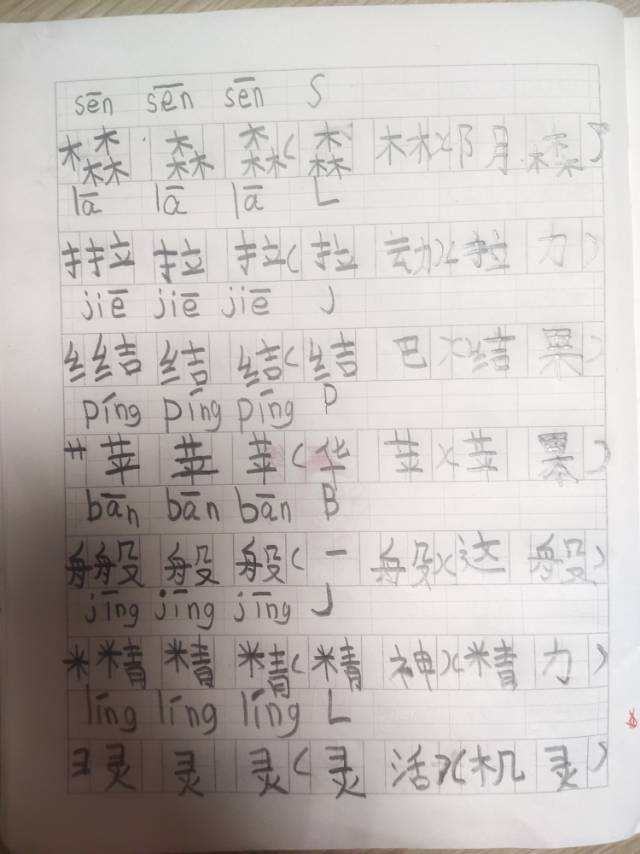 sēn sēn sēn S
木森 森 森(森 林)(阴 森)
lā lā lā L
扌拉 拉 拉(拉 动)(拉 力)
jiē jiē jiē J
纟结 结 结(结 巴)(结 果)
píng píng píng P
艹苹 苹 苹(华 苹)(苹 果)
bān bān bān B
舟般 般 般(一 般)(这 般)
jīng jīng jīng J
米精 精 精(精 神)(精 力)
líng líng líng L
彐灵 灵 灵(灵 活)(机 灵)